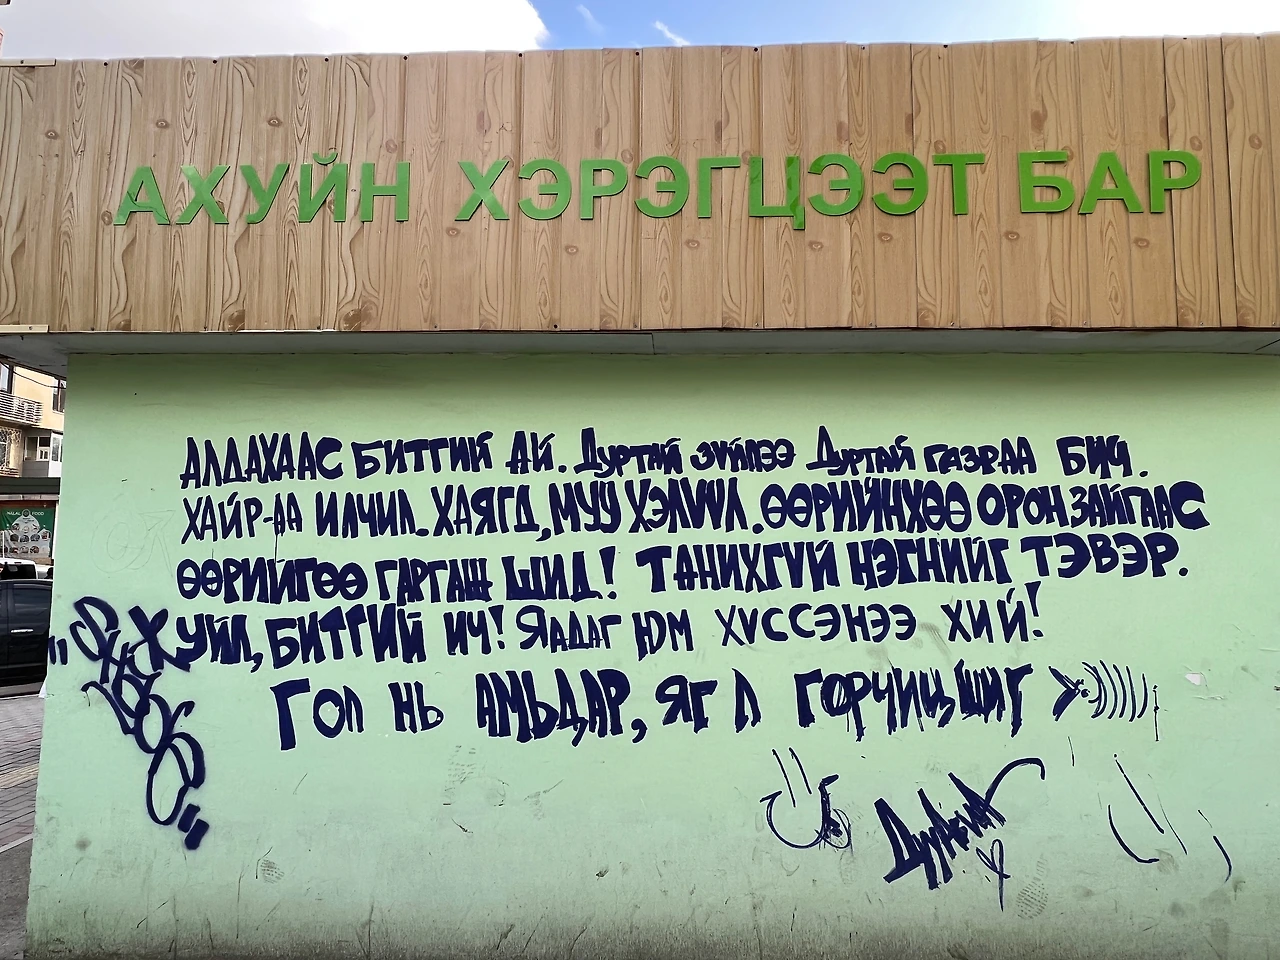 АХУЙН ХЭРЭГЦЭЭТ БАР
АЛДАХААС БИТГИЙ АЙ. Дуртай зүйлээ Дуртай газраа БИЧ.
ХАЙР-АА ИЛЧИЛ. ХАЯГД, МУУ ХЭЛҮҮЛ. ӨӨРИЙНХӨӨ ОРОН ЗАЙГААС
ӨӨРИЙГӨӨ ГАРГАЖ ШИД! ТАНИХГҮЙ НЭГНИЙГ ТЭВЭР.
УЙЛ, БИТГИЙ ИЧ! Яадаг ЮМ ХҮССЭНЭЭ ХИЙ!
Гол нь АМЬДАР, ЯГ Л ГОРЧИЦ ШИГ
HALAL FOOD